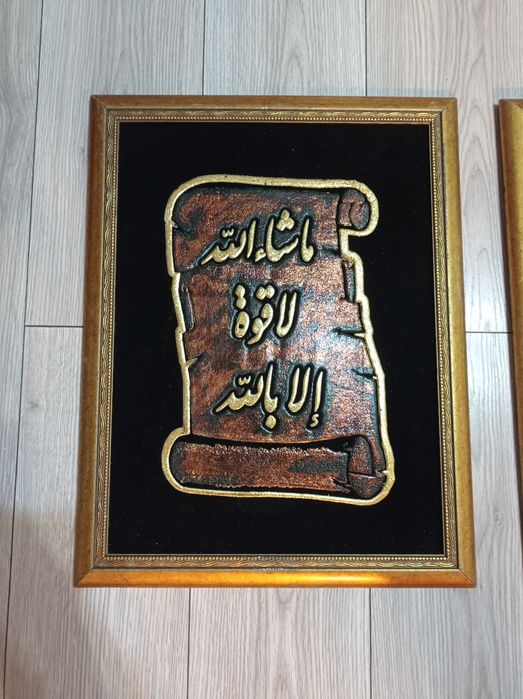 ماشاء الله
لا قوة
إلا بالله